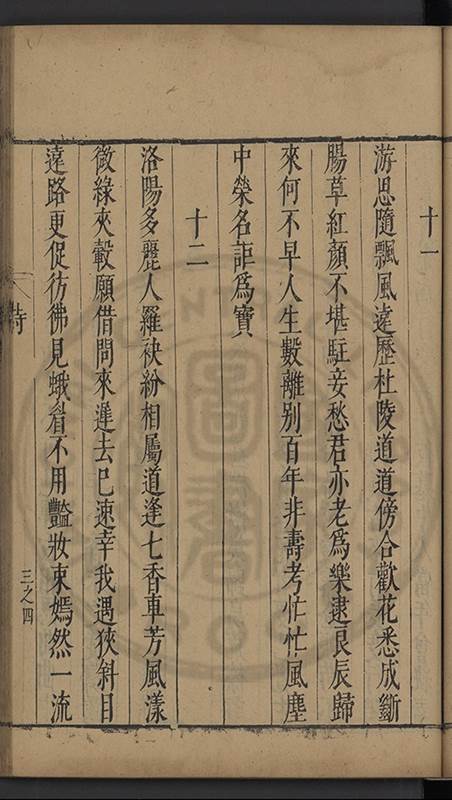 十一
游思隨飄風遠歷杜陵道道傍合歡花悉成斷
腸草紅顏不堪駐妾愁君亦老為樂逮良辰歸
來何不早人生數離別百年非壽考忙忙風塵
中榮名詎為寶
十二
洛陽多麗人羅袂紛相屬道逢七香車芳風漾
微綠夾轂願借問來遲去已速幸我遇狹斜目
遠路更促彷彿見蛾眉不用豔妝束嫣然一流
詩
三之四